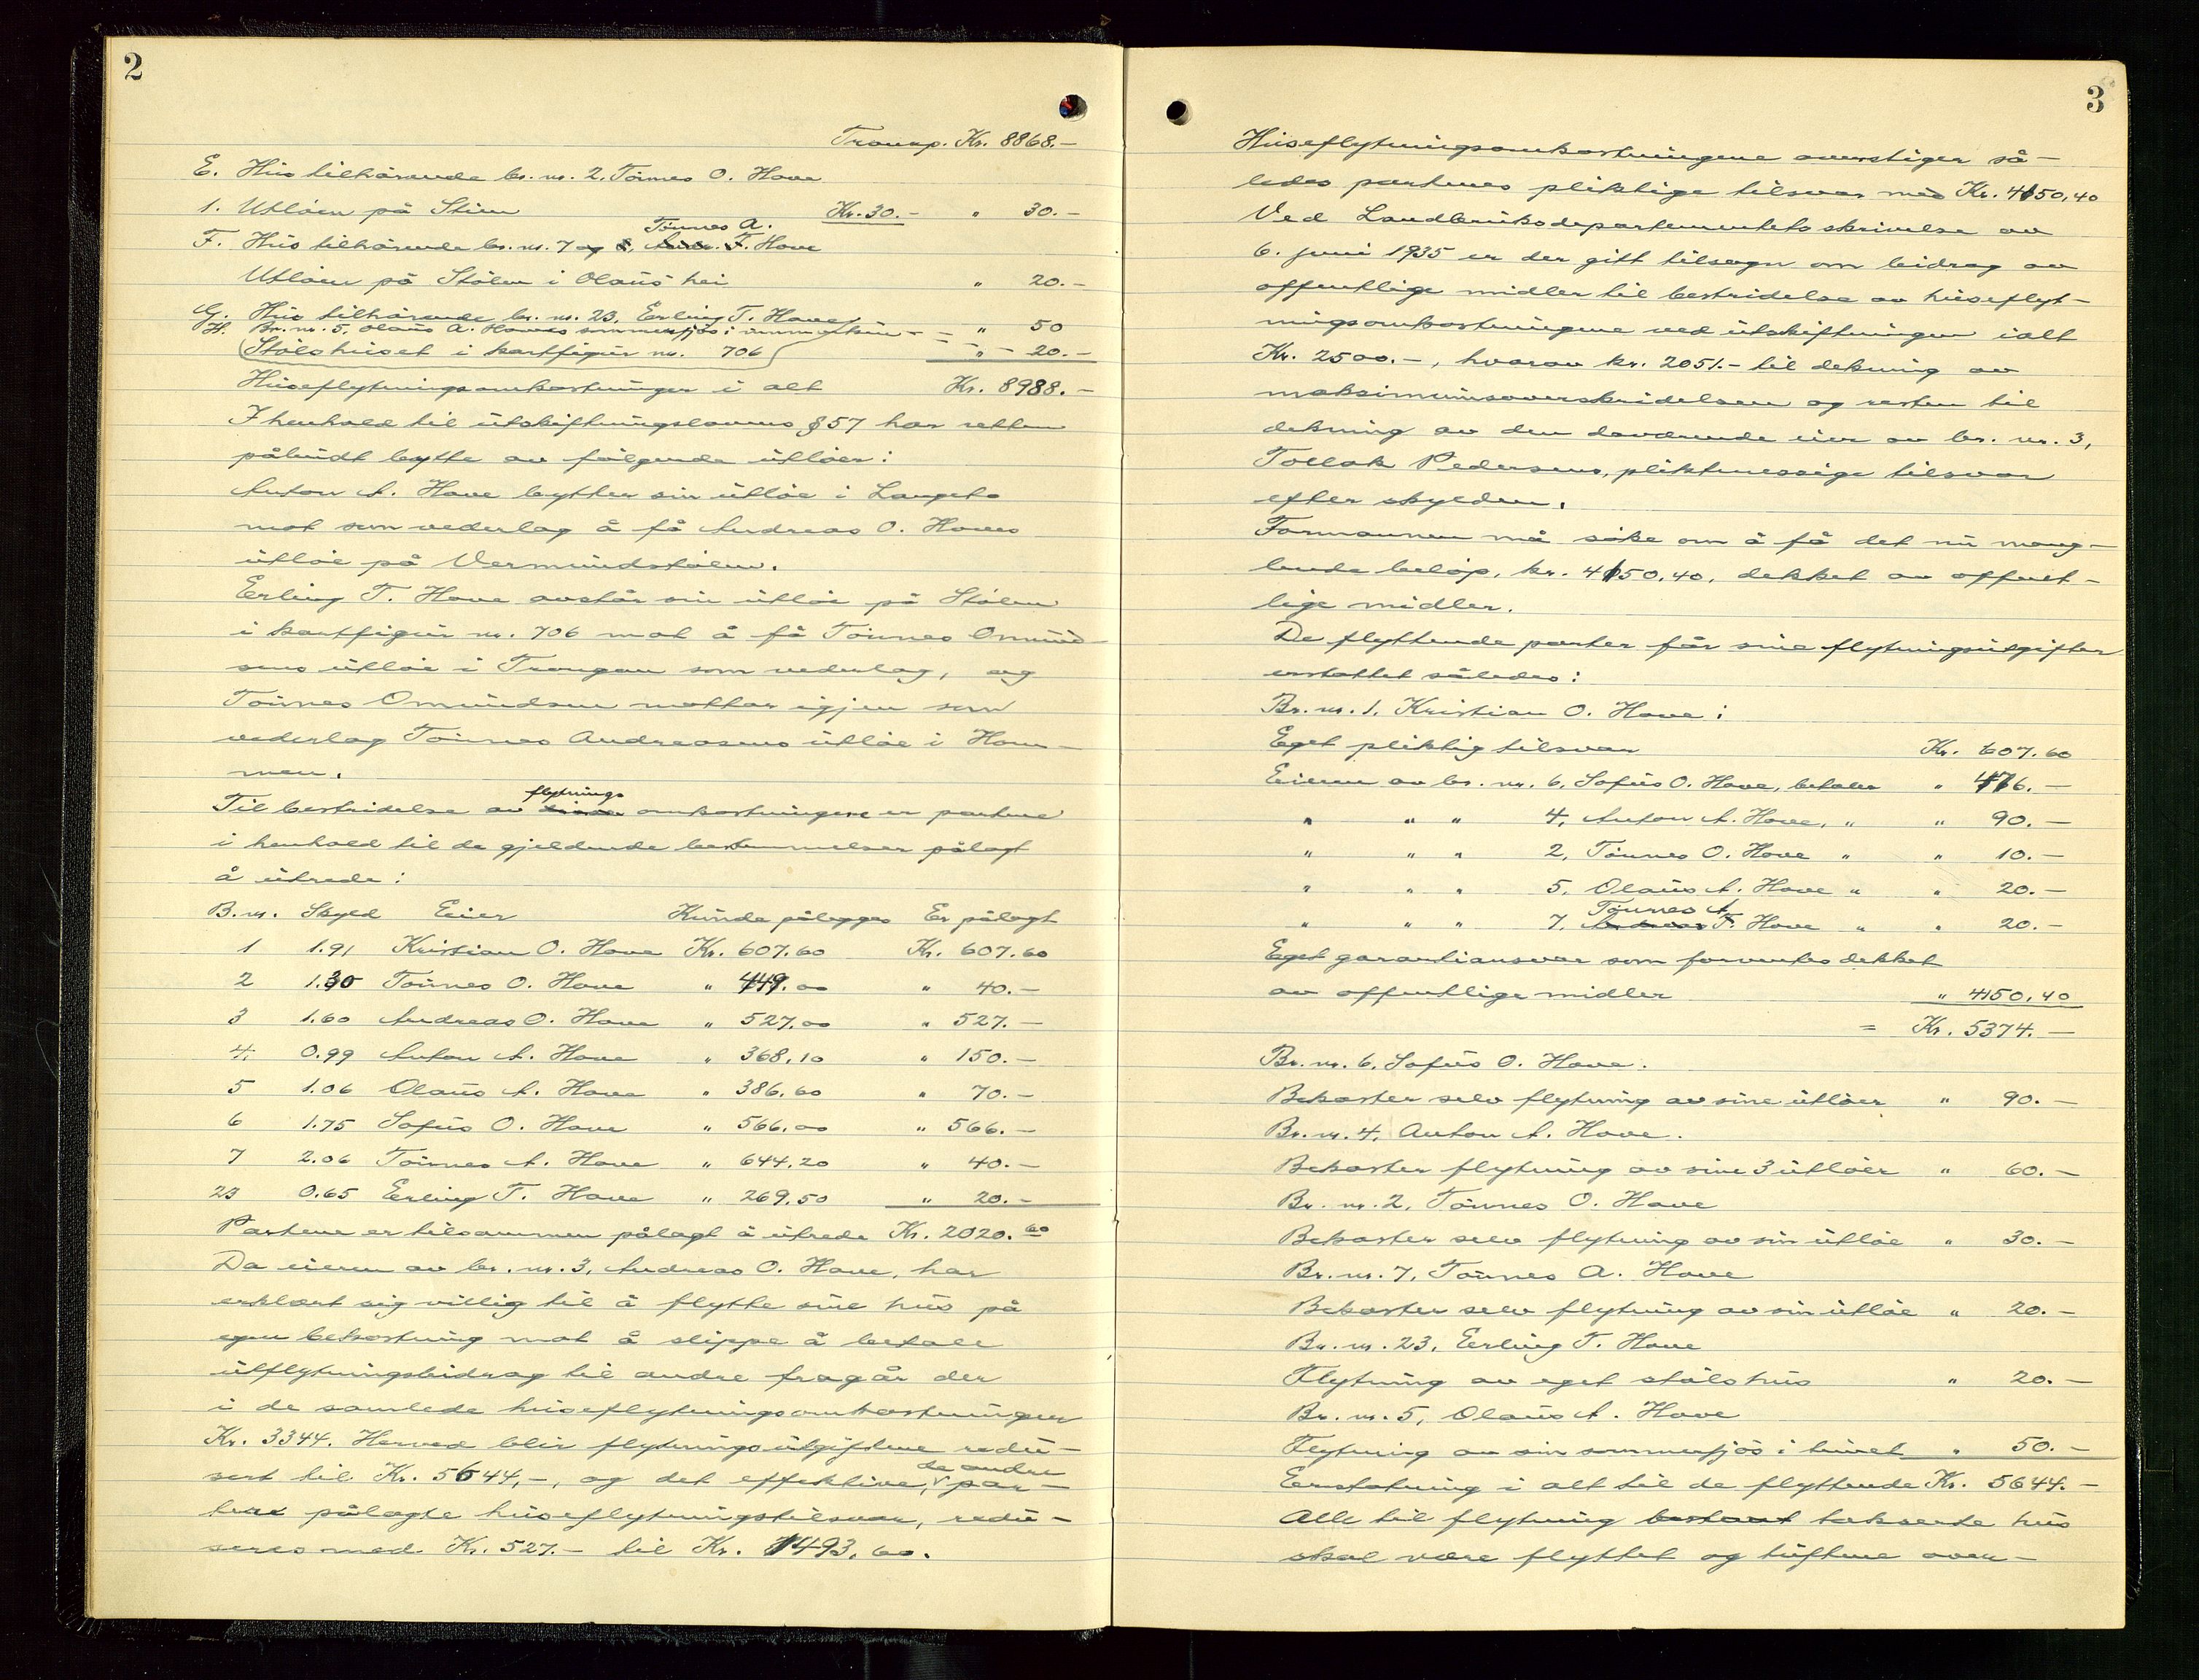 2
Transp. Kr. 8868.-
E. Hus tilhörende br. nr. 2, Tönnes O. Hove
1. Utlöen på Stien Kr. 30.- " 30.-
Tönnes A.
F. Hus tilhörende br. nr. 7 og 8, Andr. T. Hove
Utlöen på Stölen i Olaus hei " 20.-
G. Hus tilhörende br. nr. 23, Erling T. Hove
H. Br. nr. 5, Olaus A. Hoves sommerfjös i - - " 50
Stölshuset i kartfigur nr. 706 - " - 20.-
Huseflytningsomkostninger i alt Kr. 8988.-
I henhold til utskiftningslovens § 57 har retten
påbudt bytte av fölgende utlöer:
Anton A. Hove bytter sin utlöe i Langeto
mot som vederlag å få Andreas O. Hoves
utlöe på Vermundstölen.
Erling T. Hove avstår sin utlöe på Stölen
i kartfigur nr. 706 mot å få Tönnes Omund-
sens utlöe i Trongan som vederlag, og
Tönnes Omundsen mottar igjen som
vederlag Tönnes Andreasens utlöe i Hom-
men.
flytnings
Til bestridelse av omkostningene er partene
i henhold til de gjeldende bestemmelser pålagt
å utrede:
B. nr. Skyld Eier Kunde pålegges Er pålagt
1 1.91 Kristian O. Hove Kr. 607.60 Kr. 607.60
2 1.30 Tönnes O. Hove " 449.00 " 40.-
3 1.60 Andreas O. Hove " 527.00 " 527.-
4. 0.99 Anton A. Hove " 368.10 " 150.-
5 1.06 Olaus A. Hove " 386.60 " 70.-
6 1.75 Sofus O. Hove " 566.00 " 566.-
7 2.06 Tönnes A. Hove " 644.20 " 40.-
23 0.65 Erling T. Hove " 269.50 " 20.-
Partene er tilsammen pålagt å utrede Kr. 2020.60
Da eieren av br. nr. 3, Andreas O. Hove, har
erklært sig villig til å flytte sine hus på
egen bekostning mot å slippe å betale
utflytningsbidrag til andre fragår der
i de samlede huseflytningsomkostninger
Kr. 3344. Herved blir flytningsutgiftene redu-
de andre
sert til Kr. 5644,-, og det effektive, par-
tene pålagte huseflytningstilsvar, redu-
seres med Kr. 527.- til Kr. 1493,60.
3
Huseflytningsomkostningene overstiger så-
ledes partenes pliktige tilsvar med Kr. 4150,40
Ved Landbruksdepartementets skrivelse av
6. juni 1935 er der gitt tilsagn om bidrag av
offentlige midler til bestridelse av huseflyt-
ningsomkostningene ved utskiftningen ialt
Kr. 2500.-, hvorav kr. 2051.- til dekning av
maksimumsoverskridelsen og resten til
dekning av den daværende eier av br. nr. 3,
Tollak Pedersens, pliktmessige tilsvar
efter skylden.
Formannen må söke om å få det nu mang-
lende belöp, kr. 4150.40, dekket av offent-
lige midler.
De flyttende parter får sine flytningsutgifter
erstattet således:
Br. nr. 1. Kristian O. Hove:
Eget pliktig tilsvar Kr. 607.60
Eieren av br. nr. 6, Sofus O. Hove, betaler " 476.-
" " " 4, Anton A. Hove, " " 90.-
" " " 2, Tönnes O. Hove " " 10.-
" " " 5, Olaus A. Hove " " 20.-
Tönnes A
" " " 7, Andreas T. Hove " " 20.-
Eget garantiansvar som forventes dekket
av offentlige midler " 4150,40
= Kr. 5374.-
Br. nr. 6, Sofus O. Hove.
Bekoster selv flytning av sine utlöer " 90.-
Br. nr. 4, Anton A. Hove.
Bekoster flytning av sine 3 utlöer " 60.-
Br. nr. 2, Tönnes O. Hove
Bekoster selv flytning av sin utlöe " 30.-
Br. nr. 7, Tönnes A. Hove
Bekoster selv flytning av sin utlöe " 20.-
Br. nr. 23, Erling T. Hove
Flytning av eget stölshus " 20.-
Br. nr. 5, Olaus A. Hove
Flytning av sin sommerfjös i tunet " 50.-
Erstatning i alt til de flyttende Kr. 5644.-
Alle til flytning bestemt takserte hus
skal være flyttet og tuftene over-